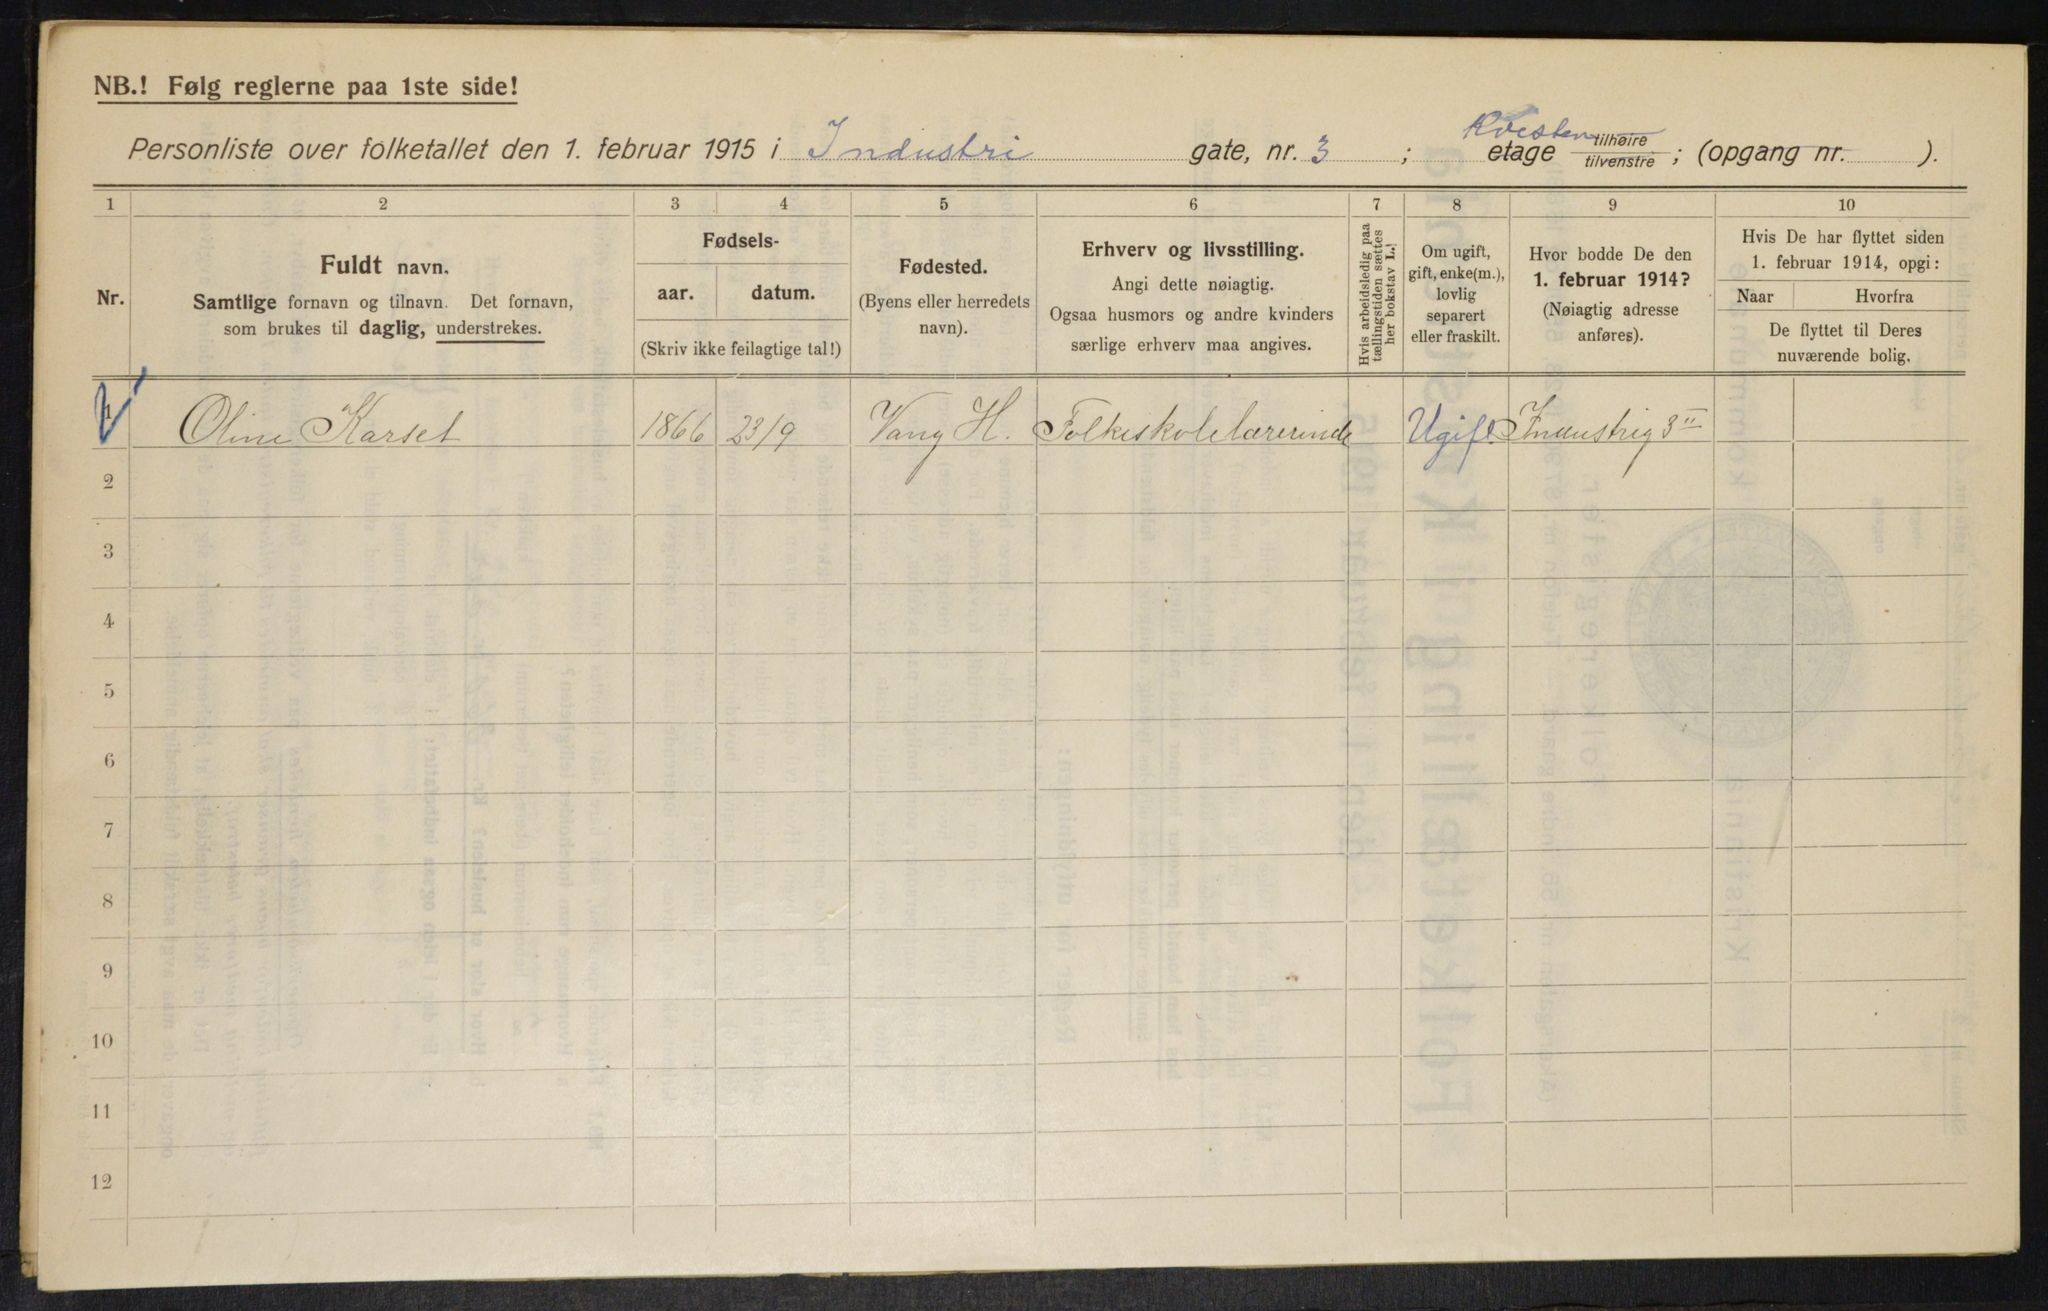 NB.! Følg reglerne paa 1ste side!
Personliste over folketallet den 1. februar 1915 i Industri gate, nr. 3 ; Kvisten etage tilhøire tilvenstre ; (opgang nr. ).
1 2 3 4 5 6 7 8 9 10
Nr.
Fuldt navn.
Samtlige fornavn og tilnavn. Det fornavn,
som brukes til daglig, understrekes.
Fødsels-
aar. datum.
(Skriv ikke feilagtige tal!)
Fødested.
(Byens eller herredets
navn).
Erhverv og livsstilling.
Angi dette nøiagtig.
Ogsaa husmors og andre kvinders
særlige erhverv maa angives.
Hvis arbeidsledig paa
tællingstiden sættes
her bokstav L.!
Om ugift,
gift, enke(m.),
lovlig
separert
eller fraskilt.
Hvor bodde De den
1. februar 1914?
(Nøiagtig adresse
anføres).
Hvis De har flyttet siden
1. februar 1914, opgi:
Naar Hvorfra
De flyttet til Deres
nuværende bolig.
1 Oline Karset 1866 23/9 Vang H. Folkeskolelærerinde Ugift. Industrig 3 II
2
3
4
5
6
7
8
9
10
11
12